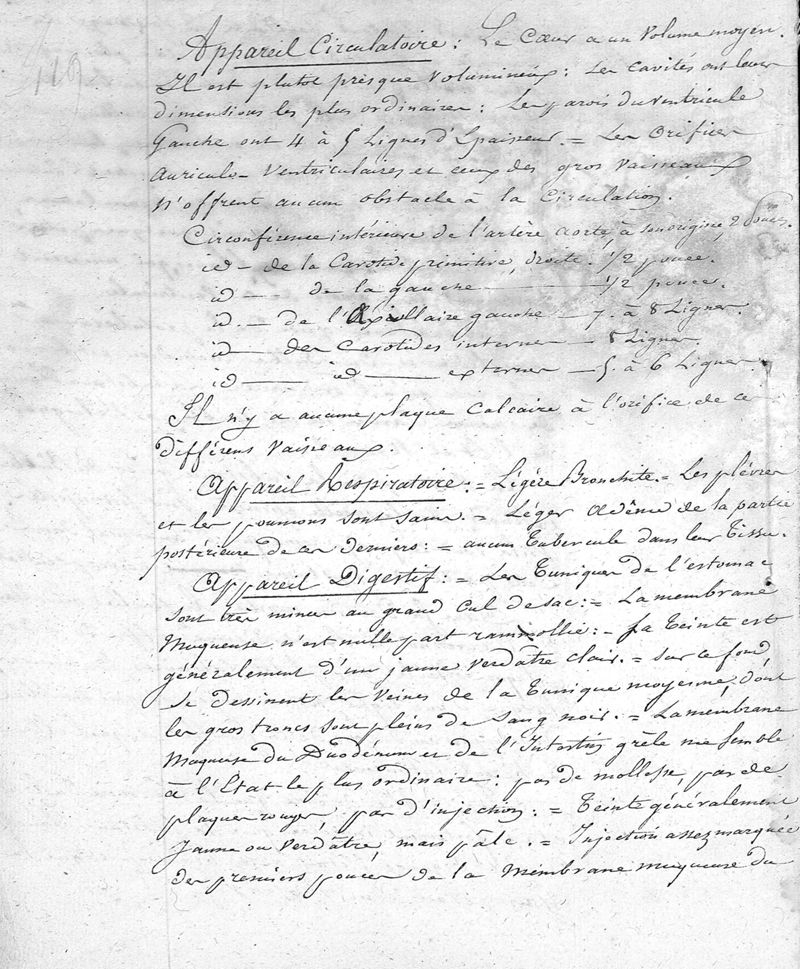 Appareil Circulatoire : Le Cœur a un Volume moyen.
Il est plutot presque Volumineux : Les cavités ont leurs
dimensions les plus ordinaires : Les parois du ventricule
Gauche ont 4 à 5 Lignes d'Epaisseur. = Les Orifices
auriculo-Ventriculaires et ceux des gros Vaisseaux
n'offrent aucun obstacle à la Circulation.
Circonférence intérieure de l'artère aorte, à son origine, 2 Pouces.
id — de la Carotide primitive, droite. 1/2 pouce.
id — de la gauche — 1/2 pouce.
id. — de l'Axillaire gauche — 7. à 8 Lignes.
id — des Carotides internes — 8 Lignes.
id — id — externes — 5. à 6 Lignes.
Il n'y a aucune plaque Calcaire à l'orifice de ce
différens Vaisseaux.
Appareil Respiratoire : = Légère Bronchite. = Les plévres
et les poumons sont sains. = Léger Œdême de la partie
postérieure de ces derniers : = aucun Tubercule dans leur Tissu.
Appareil Digestif : = Les Tuniques de l'estomac
sont très minces au grand Cul de sac : = La membrane
Muqueuse n'est nulle part rammollie : - Sa Teinte est
généralement d'un jaune Verdâtre clair. = Sur ce fond
se dessinent les Veines de la Tunique moyenne, dont
les gros troncs sont pleins de Sang noir. = La membrane
Muqueuse du Duodénum et de l'Intestin grèle me semble
à l'Etat le plus ordinaire : pas de mollesse, pas de
plaques rouges, pas d'injection : = Teinte généralement
Jaune ou Verdâtre, mais pâle. = Injection assez marquée
des premiers pouces de la Mémbrane muqueuse du